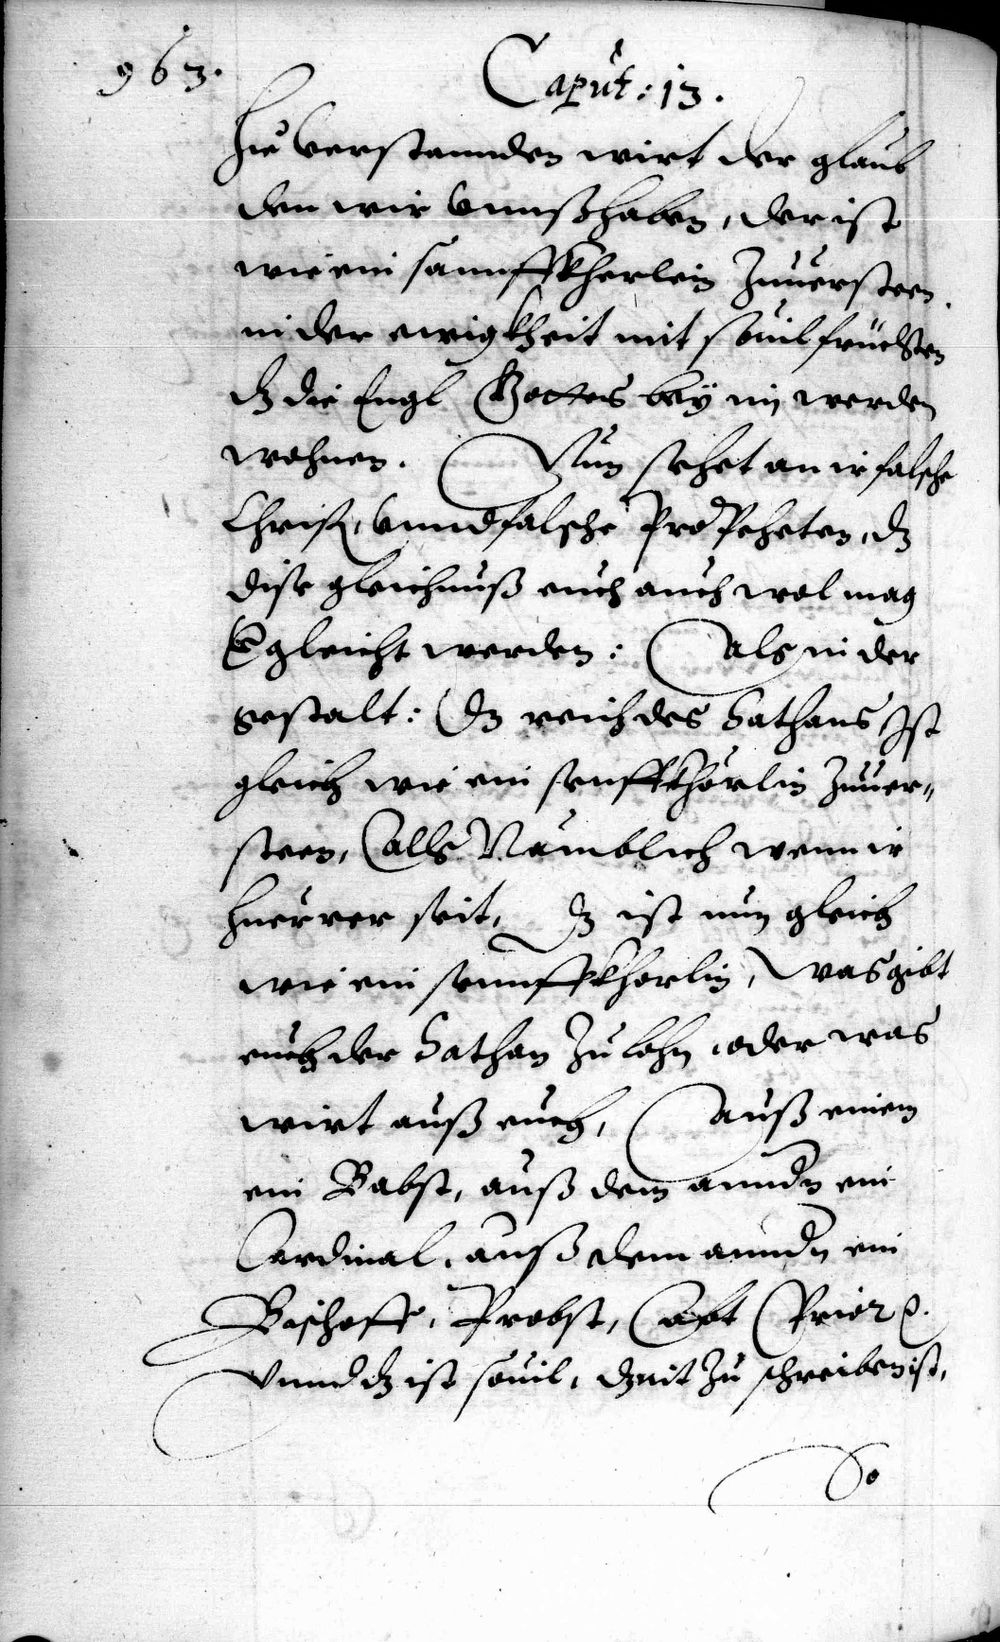 963.
Caput: 13.
hie verstannden wirt der glaub
den wir vnnß haben, der ist
wie ein sannffkherlein zuuersteen,
in der ewigkheit mit souil früchten
dz die Engl Gottes bey im werden
wohnen. Nun sehet an ir falsche
Christ, vnnd falsche Propheten, dz
dise gleichnuß euch auch wol mag
vergleicht werden: Als in der
gestalt: Dz reich des Sathans Ist
gleich wie ein senffkhörlin zuuer„
steen, Alls Namblich wenn ir
huerrer seit, dz ist nun gleich
wie ein sennffkhorlin, was gibt
euch der Sathan zu lohn, oder was
wirt auß euch, Auß einem
ein Babst, auß dem anndern ein
Cardinal, auß dem anndern ein
Bischoff, Probst, Abt Prior etc.
Vnnd dz ist souil, dz nit zu schreiben ist,
So